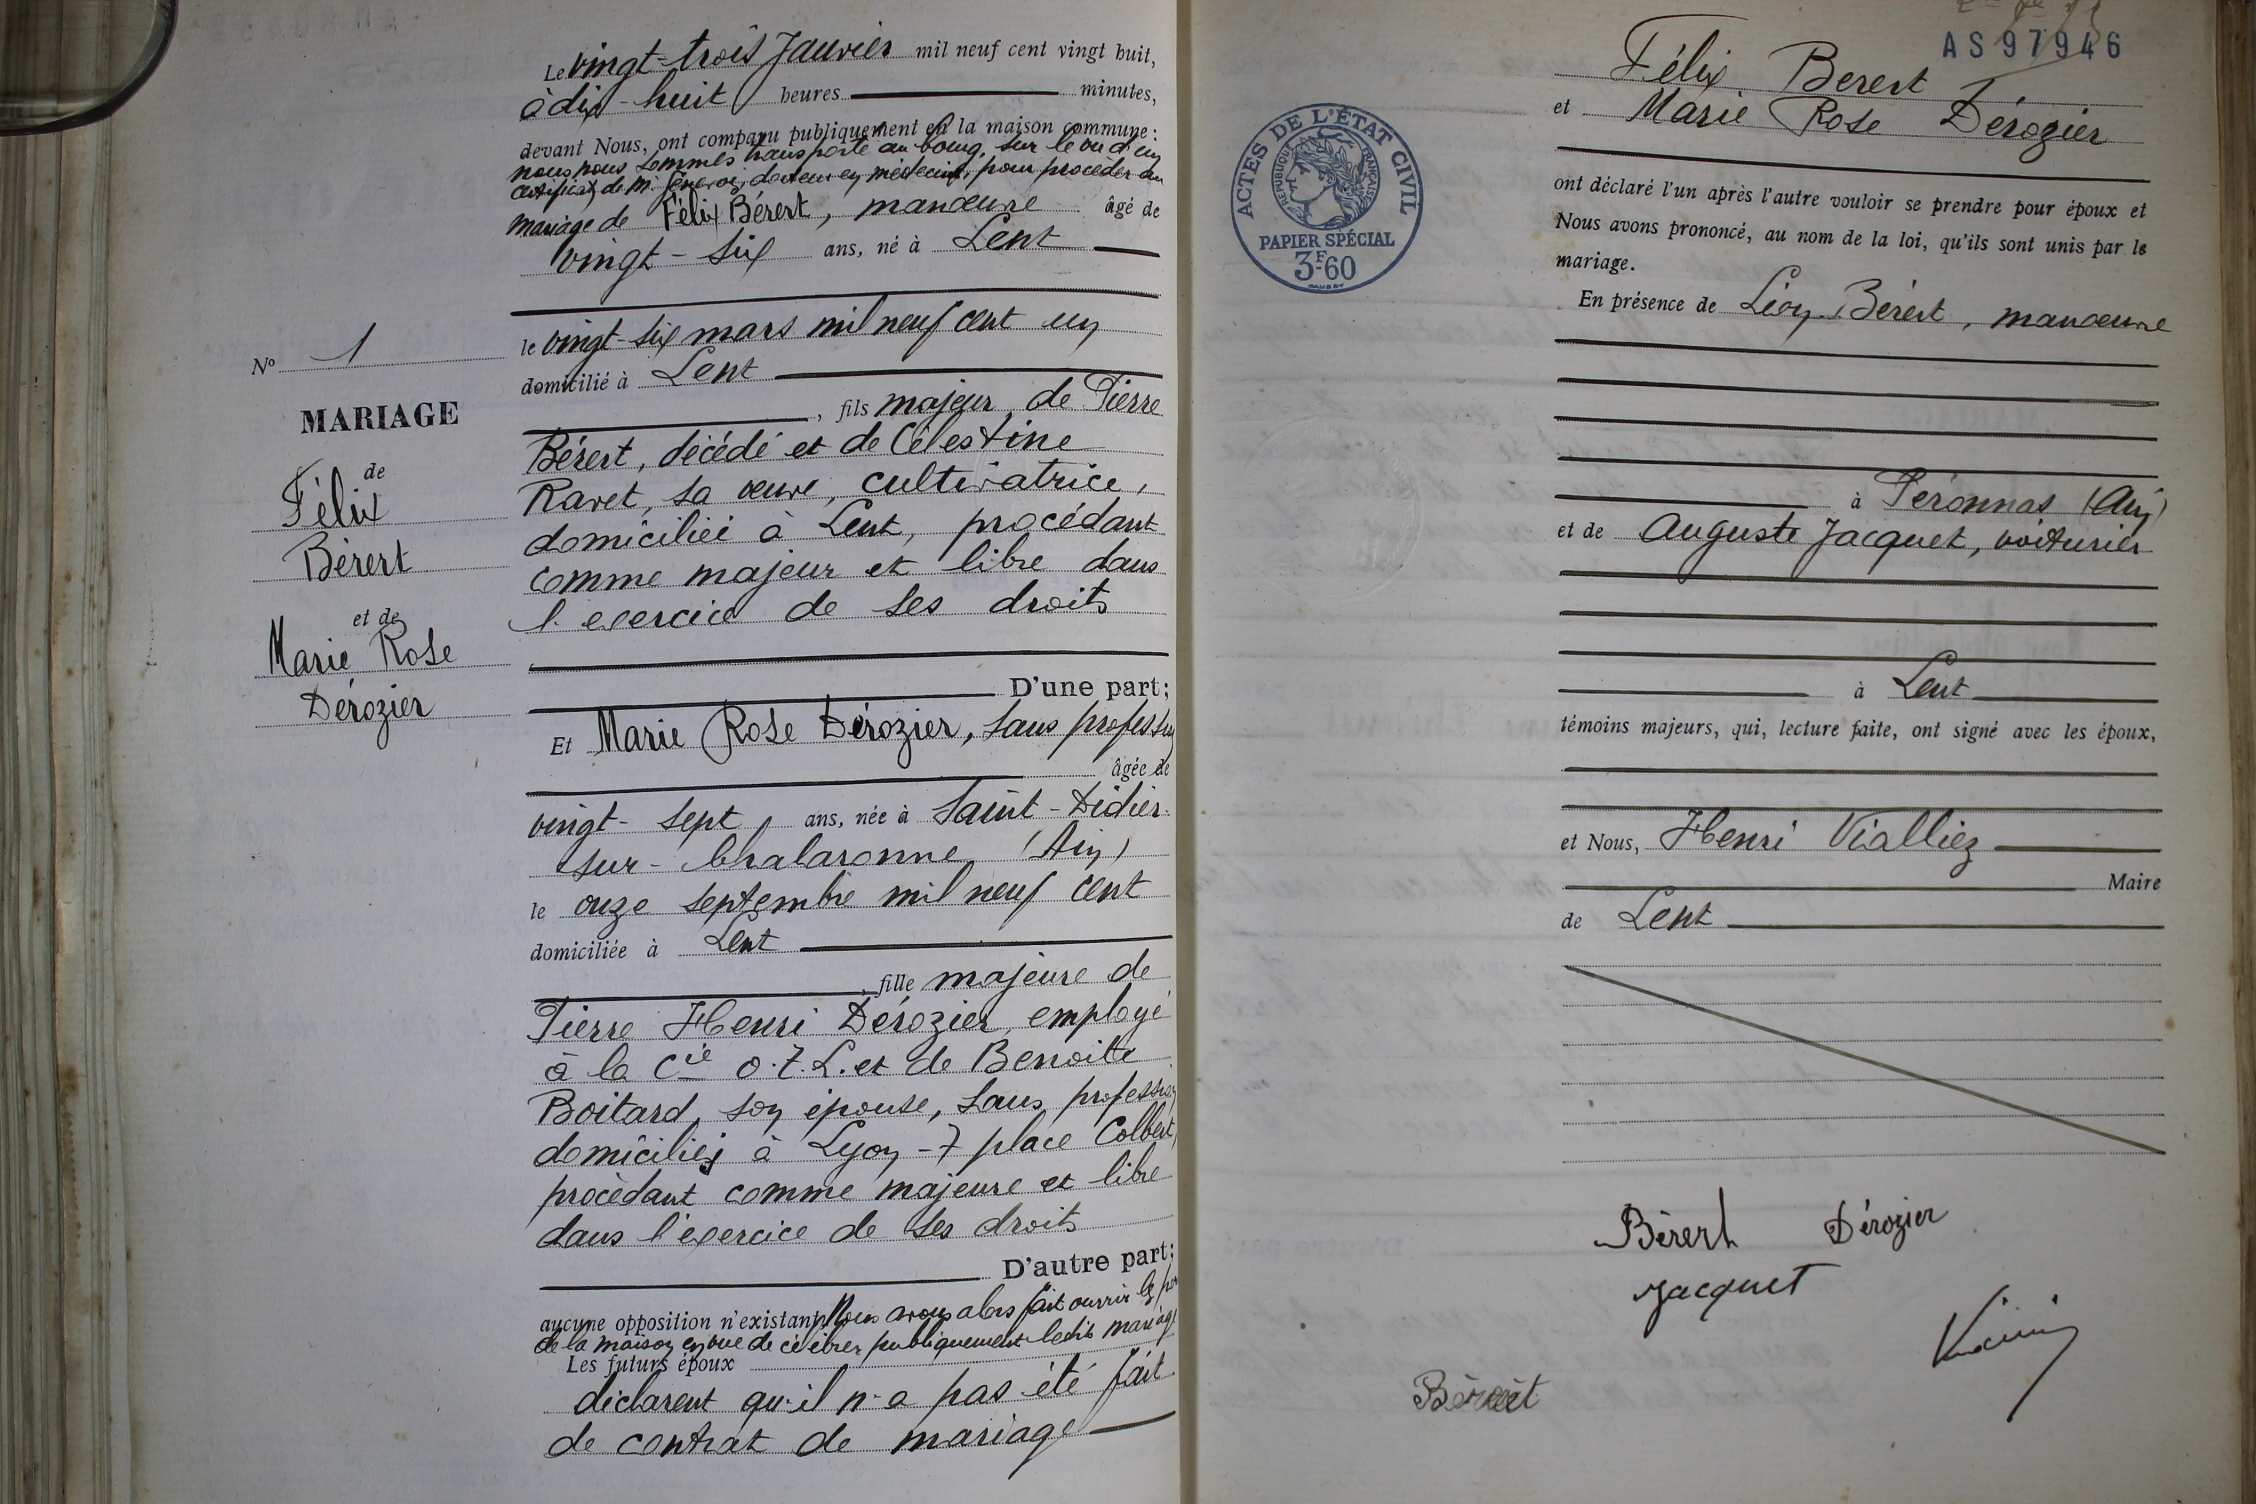 Le vingt-trois Janvier mil neuf cent vingt huit,
à dix-huit heures minutes,
devant Nous, ont comparu publiquement en la maison commune :
nous nous sommes transporté au bourg, sur le vu d'un
certificat de M. docteur en médecine, pour procéder au
mariage de Félix Bérert, manœuvre âgé de
vingt-six ans, né à Lent
le vingt-six mars mil neuf cent un
domicilié à Lent
, fils majeur de Pierre
Bérert, décédé et de Célestine
Ravet, sa veuve, cultivatrice,
domiciliée à Lent, procédant
comme majeur et libre dans
l'exercice de ses droits
D'une part;
No 1
MARIAGE
de
Félix
Bérert
et de
Marie Rose
Dérozier
Et Marie Rose Dérozier, sans profession
âgée de
vingt-sept ans, née à Saint-Didier-
sur-Chalaronne (Ain)
le onze septembre mil neuf cent
domiciliée à Lent
, fille majeure de
Pierre Henri Dérozier, employé
à la Cie O.T.L. et de Benoite
Boitard, son épouse, sans profession
domiciliés à Lyon -7 place Colbert,
procédant comme majeure et libre
dans l'exercice de ses droits
D'autre part;
aucune opposition n'existant, Nous avons alors fait ouvrir les
de la maison en vue de célébrer publiquement ledit mariage
Les futurs époux
déclarent qu'il n'a pas été fait
de contrat de mariage
AS 97946
Félix Berert
et Marie Rose Dérozier
ACTES DE L'ÉTAT CIVIL
REPUBLIQUE FRANÇAISE
PAPIER SPÉCIAL
3F60
ont déclaré l'un après l'autre vouloir se prendre pour époux et
Nous avons prononcé, au nom de la loi, qu'ils sont unis par le
mariage.
En présence de Léon Bérert, manœuvre
à Péronnas (Ain)
et de Auguste Jacquet, voiturier
à Lent
témoins majeurs, qui, lecture faite, ont signé avec les époux,
et Nous, Henri Vialliez
Maire
de Lent
Bérert Dérozier
Jacquet
Bérert